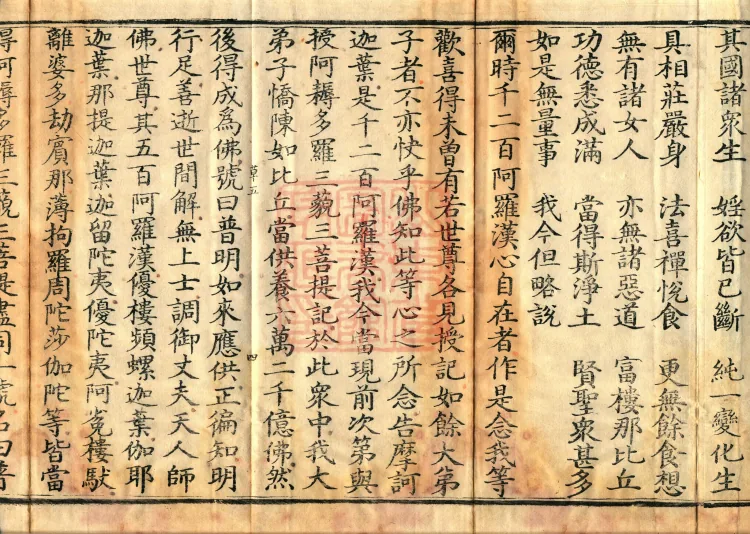 其國諸衆生　婬欲皆已斷　純一變化生
具相莊嚴身　法喜禪悅食　更無餘食想
無有諸女人　亦無諸惡道　富樓那比丘
功德悉成滿　當得斯淨土　賢聖衆甚多
如是無量事　我今但略說
爾時千二百阿羅漢心自在者作是念我等
歡喜得未曾有若世尊各見授記如餘大弟
子者不亦快乎佛知此等心之所念告摩訶
迦葉是千二百阿羅漢我今當現前次第與
授阿耨多羅三藐三菩提記於此衆中我大
弟子憍陳如比丘當供養六萬二千億佛然
草五　四
後得成爲佛號曰普明如來應供正徧知明
行足善逝世間解無上士調御丈夫天人師
佛世尊其五百阿羅漢優樓頻螺迦葉伽耶
迦葉那提迦葉迦留陀夷優陀夷阿㝹樓馱
離婆多劫賓那薄拘羅周陀莎伽陀等皆當
得阿耨多羅三藐三菩提盡同一號名曰普